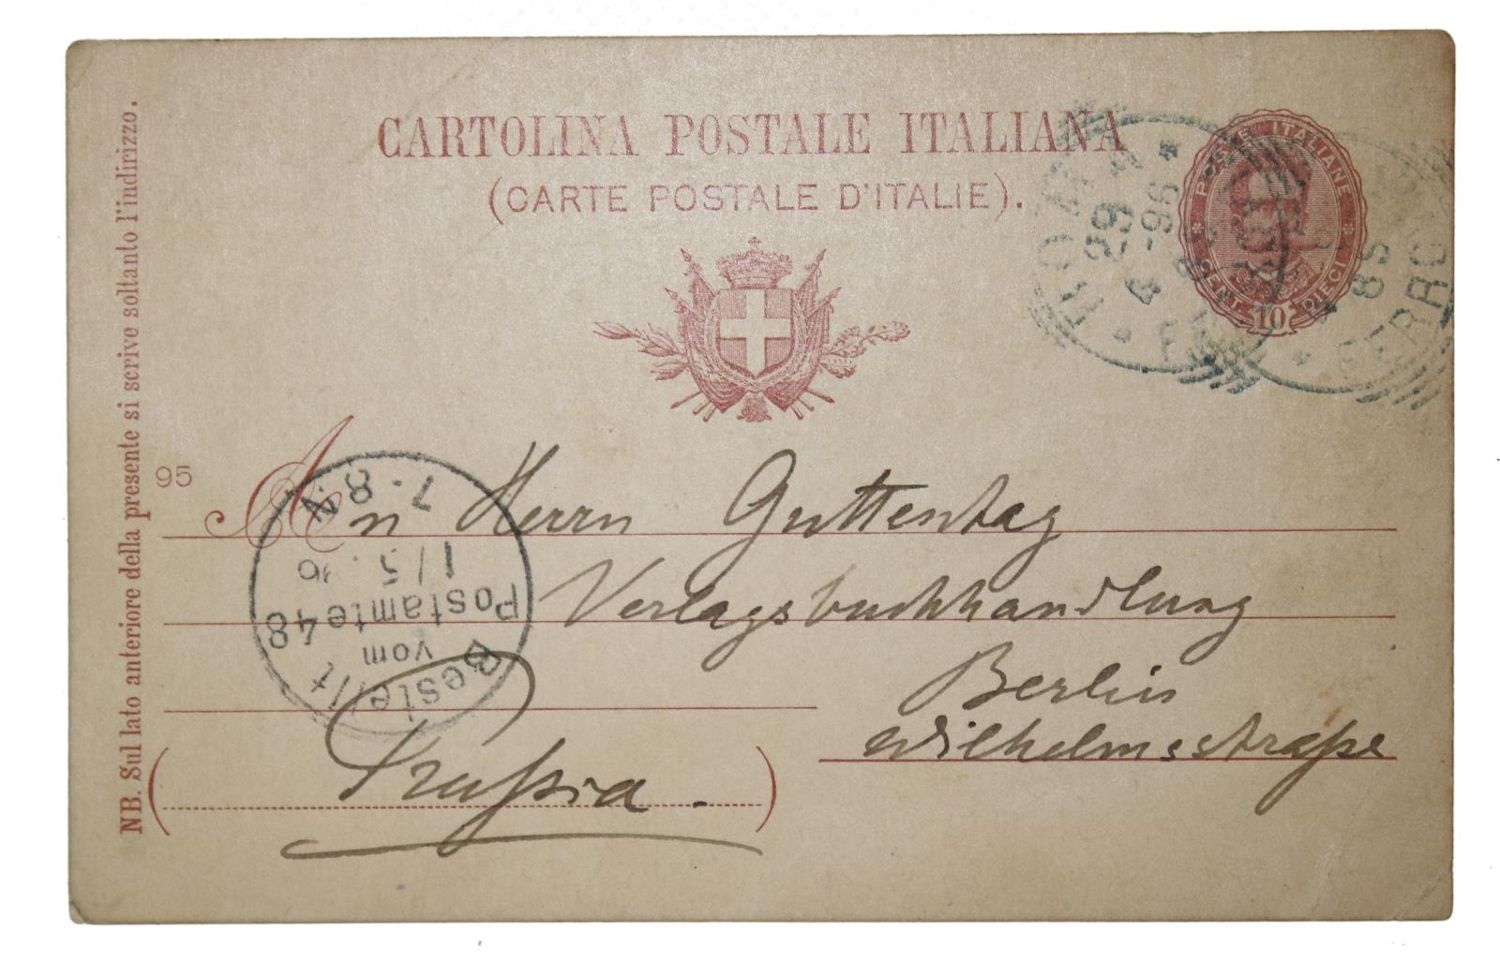 CARTOLINA POSTALE ITALIANA
(CARTE POSTALE D'ITALIE).
POSTE ITALIANE
CENT. 10 DIECI
ROMA
29 4 -96
* FERROVIA *
NB. Sul lato anteriore della presente si scrive soltanto l'indirizzo.
95
An Herrn Guttentag
Verlagsbuchhandlung
Berlin
Wilhelmsstraße
Prussia.
Bestellt
vom
Postamte 48
1/5. 96
7-8 N.